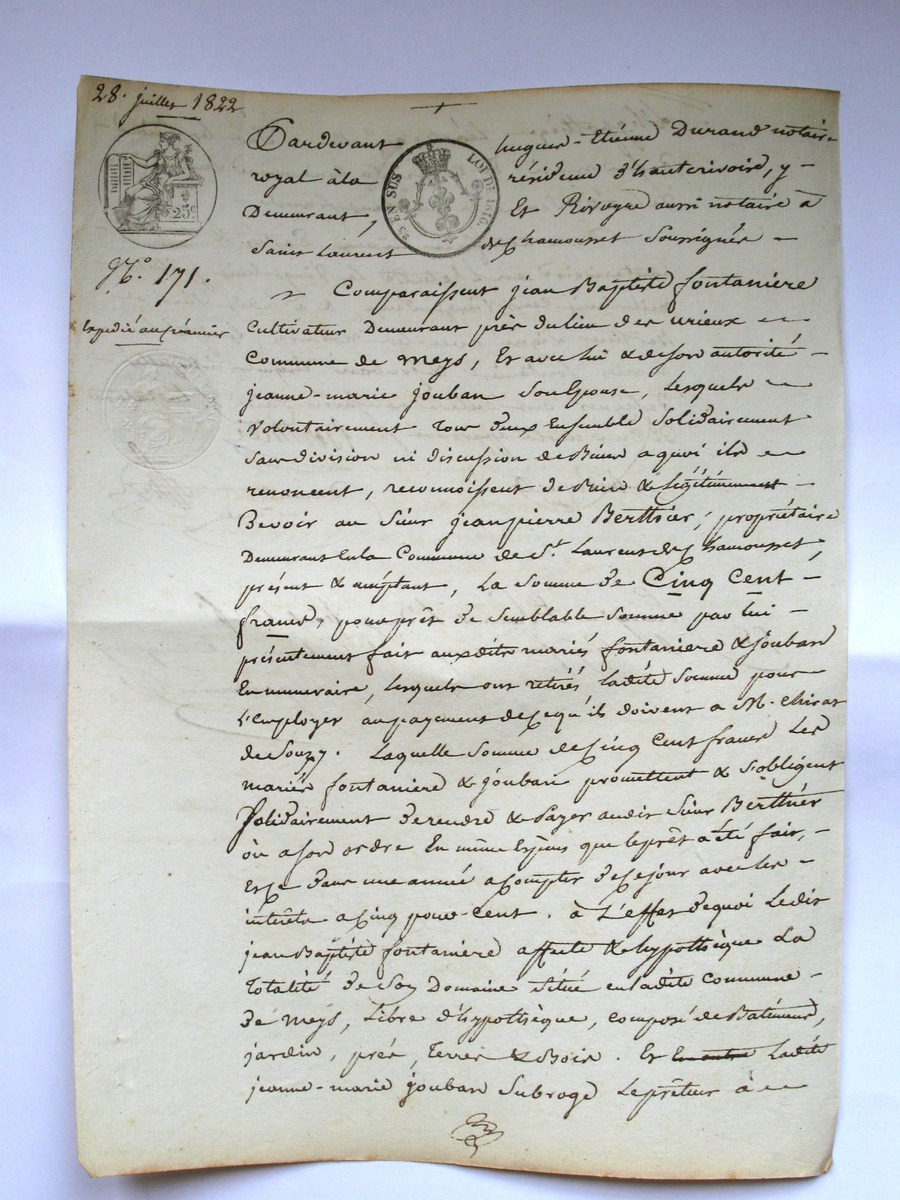 28. juillet 1822
Pardevant hugues-Etiénne Durand notaire
royal à la résidence d'hauterivoire, y-
Demeurant, Et Rivoyre aussi notaire à
Saint Laurent de Chamousset Soussignés -
25 EN SUS LOI DE 1816.
25c
N.o 171.
Expedié au créancier
Comparaissent jean Baptiste fontaniere
Cultivateur Demeurant près du lieu des urieux
Commune de Meys, Et avec lui & de son autorité -
jeanne-marie jouban Son Epouse, Lesquels
Volontairement Tous deux Ensemble Solidairement
Sans division ni discussion de Biens a quoi ils
renoncent, reconnoissent devoir & Légitimement -
Devoir au Sieur jean pierre Berthier, propriétaire
Demeurant En la Commune de St. Laurent de Chamousset,
présent & acceptant, La Somme de Cinq Cent -
francs, pour prêt de Semblable Somme par lui -
présentement fait auxdits mariés fontaniere & jouban
En numeraire, Lesquels ont retirés ladite Somme pour
L'employer au payement de Ce qu'ils doivent a M. chirat
de Souzy. Laquelle Somme de Cinq Cent francs Les
mariés fontaniere & jouban promettent & S'obligent
Solidairement de rendre & Payer audit Sieur Berthier
où a son ordre En même Espèces que le prêt a été fait,
Et Ce dans une année a Compter de Ce jour avec les -
intérêts a Cinq pour Cent. à L'effet de quoi Ledit
jean Baptiste fontaniere affecte & hypothèque La
Totalité de Son Domaine Situé en ladite commune -
De Meys, Libre d'hypothèque, composé de Batiments,
jardin, prés, Terres & Bois. Et Ladite
jeanne-marie jouban Subroge Le prêteur à